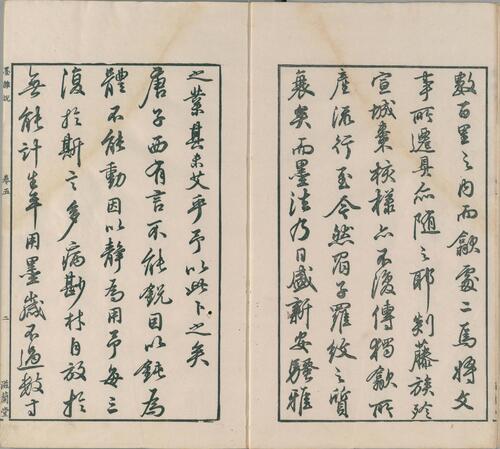 數百里之内而歙處二焉將文
事所遷具亦隨之耶剡藤族殄
宣城棗核樣亦不復傳獨歙所
產流行至今然眉子羅紋之質
衰矣而墨法乃日盛新安騷雅
之業其未艾乎予以此卜之矣
唐子西有言不能銳因以鈍為
體不能動因以靜為用予每三
復於斯言多病尠林自放於
無能計生年用墨歲不過數寸
墨雜說
卷五
二
滋蘭堂